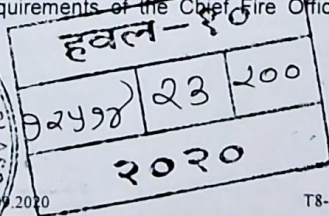 quirements of the Chief Fire Offic
हवल-१०
१२५१४ २३ २००
२०२०
9.2020 T8-